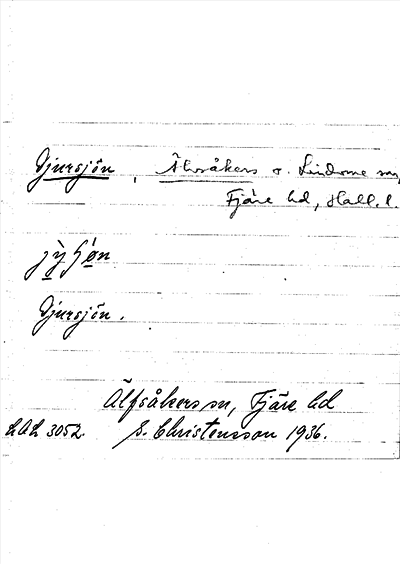 Djursjön, Älvsåkers o. Lindome sn,
Fjäre hd, Hall. l.
Djursjön.
Älfsåkers sn, Fjäre hd
LAL 3052. S. Christensson 1936.